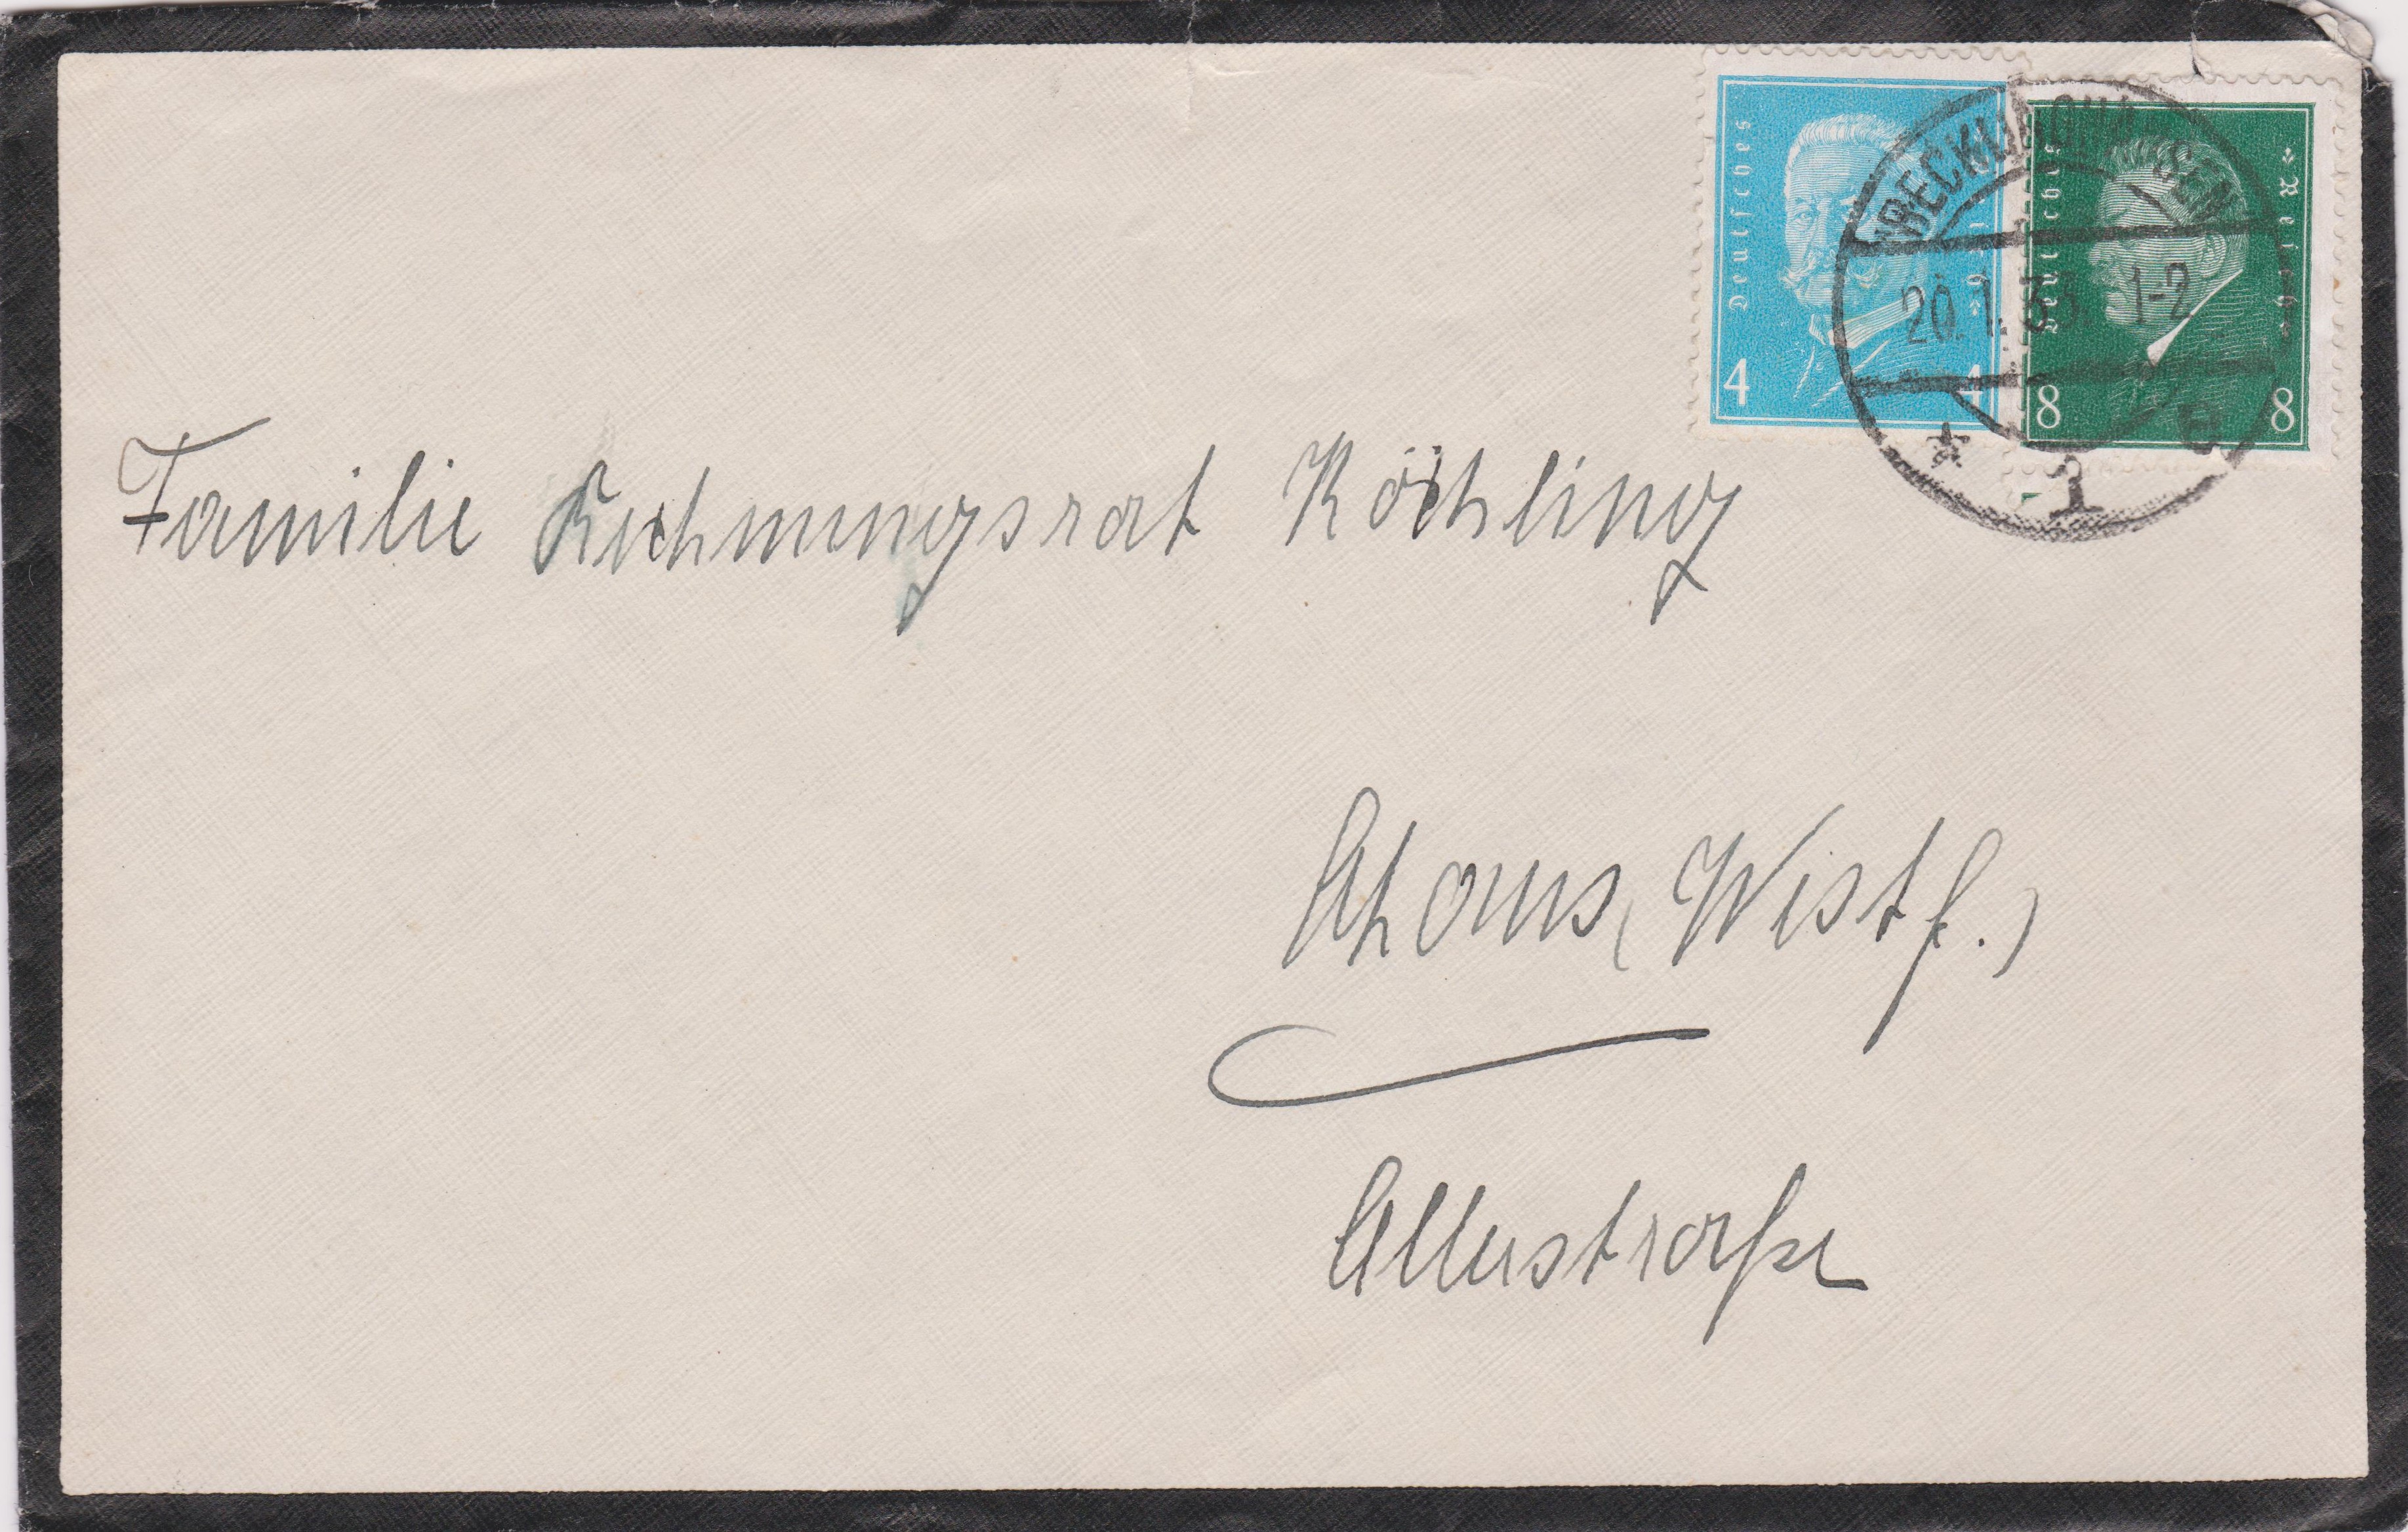 Deutsches Reich
4 4
Deutsches Reich
8 8
RECKLINGHAUSEN
20.1. 1-2
* 1 e
Familie Rechnungsrat Röchling
Ahaus (Westf.)
Alleestraße